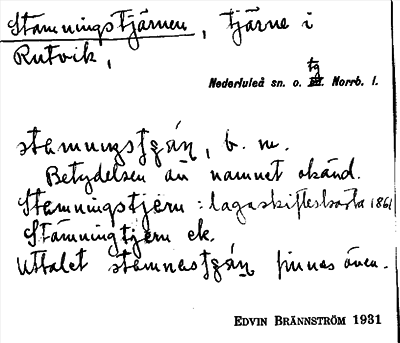 Stamningstjärnen, tjärne i
Rutvik,
Nederluleå sn. o. tg Norrb. l.
stamnıŋstjǽɳ, b. m.
Betydelsen av namnet okänd.
Stamningstjern : lagaskifteskarta 1861
Stämningtjern ek.
Uttalet stamnastjǽɳ finnes även.
EDVIN BRÄNNSTRÖM 1931